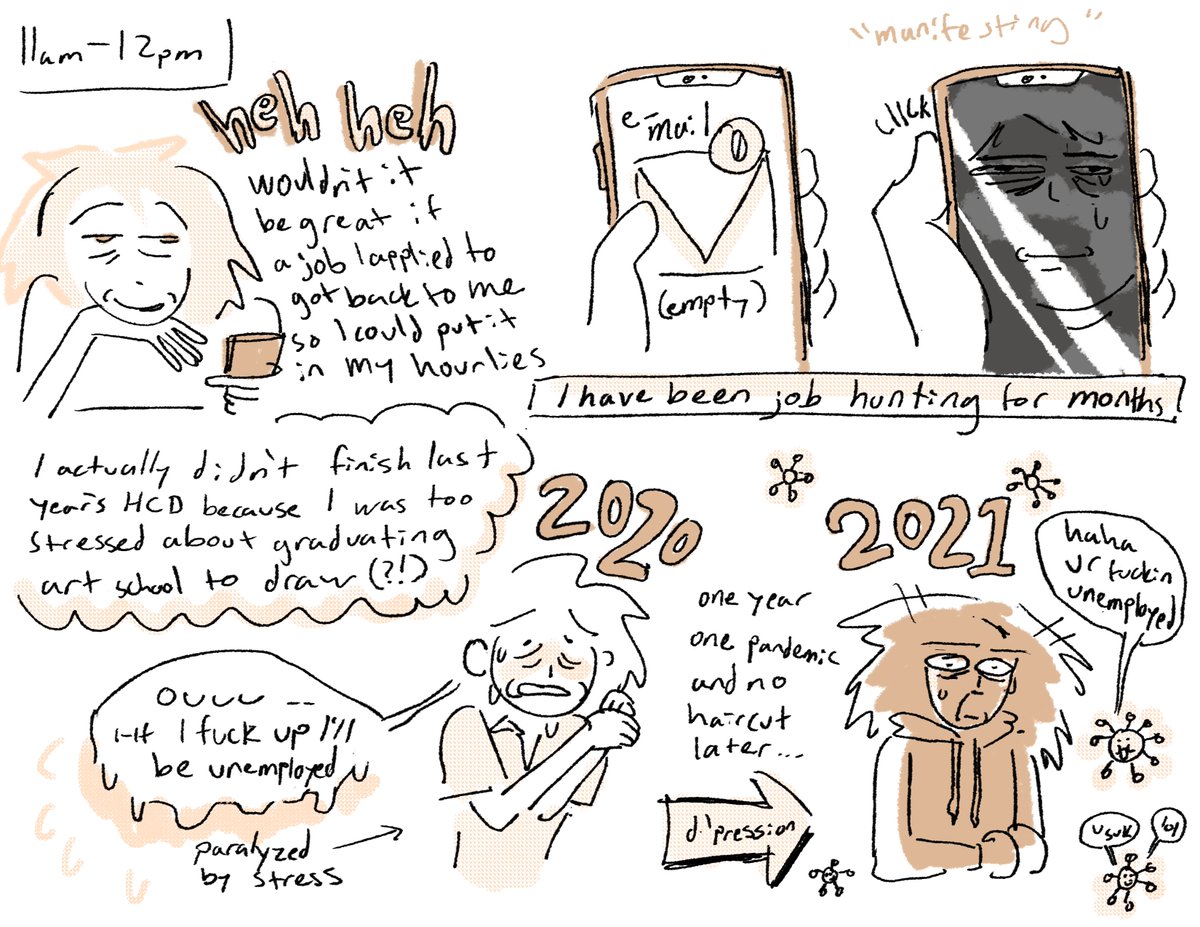 11am-12pm
heh heh
wouldn't it
be great if
a job I applied to
got back to me
so I could put it
in my hourlies
"manifesting"
e-mail
0
(empty)
click
I have been job hunting for months
I actually didn't finish last
year's HCD because I was too
stressed about graduating
art school to draw (?!)
2020
ouuu ...
i-if I fuck up I'll
be unemployed
paralyzed
by stress
one year
one pandemic
and no
haircut
later...
d'pression
2021
haha
ur fuckin
unemployed
u suk
lol